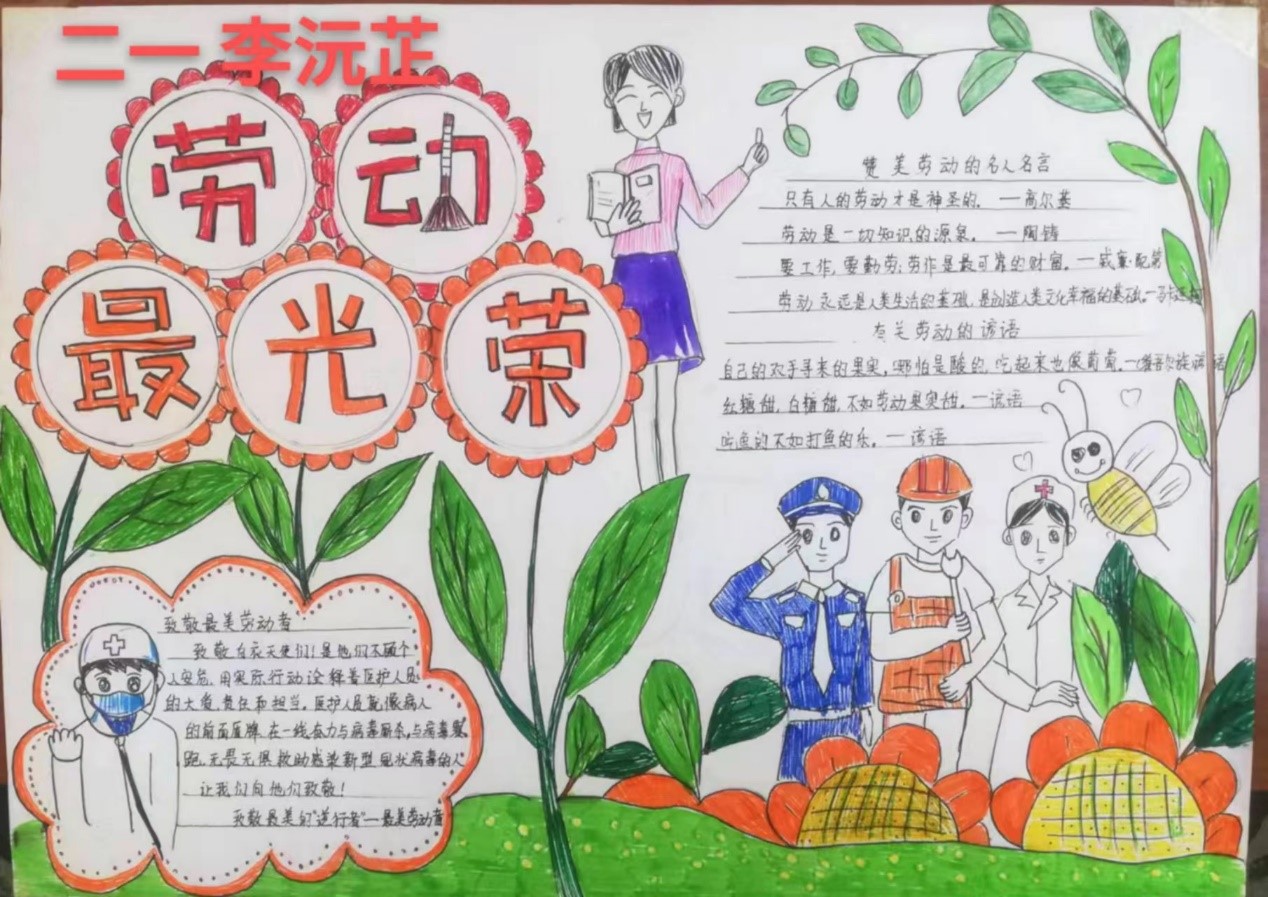 二一 李沅芷
劳动
最光荣
赞美劳动的名人名言
只有人的劳动才是神圣的。一高尔基
劳动是一切知识的源泉。一陶铸
要工作,要勤劳:劳作是最可靠的财富。一 拉·封·
劳动永远是人类生活的基础,是创造人类文化幸福的基础。一马卡连柯
有关劳动的谚语
自己的双手寻来的果实,哪怕是酸的,吃起来也像葡萄。一维吾尔族谚语
红糖甜,白糖甜,不如劳动果实甜。一谚语
吃鱼的不如打鱼的乐。一谚语
致敬最美劳动者
致敬白衣天使们!是他们不顾个
人安危,用实际行动诠释着医护人员
的大爱、责任和担当。医护人员就像病人
的前面盾牌,在一线奋力与病毒厮杀,与病毒赛
跑,无畏无惧救助感染新型冠状病毒的人
让我们向他们致敬!
致敬最美的"逆行者"一最美劳动者